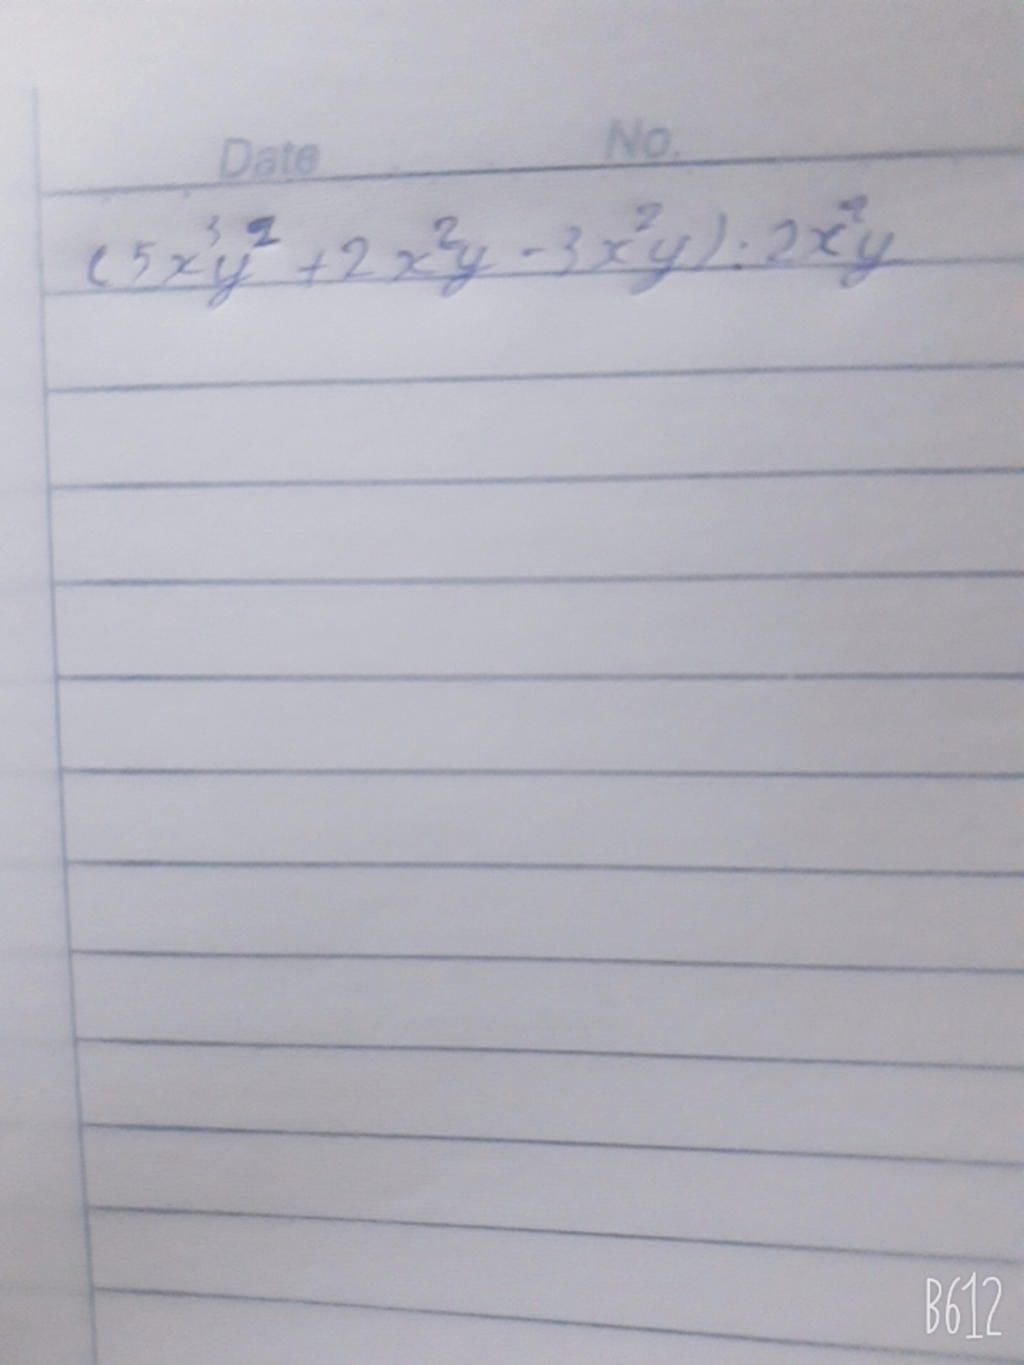 Date No.
(5x³y² + 2x²y - 3x²y) : 2x²y
B612